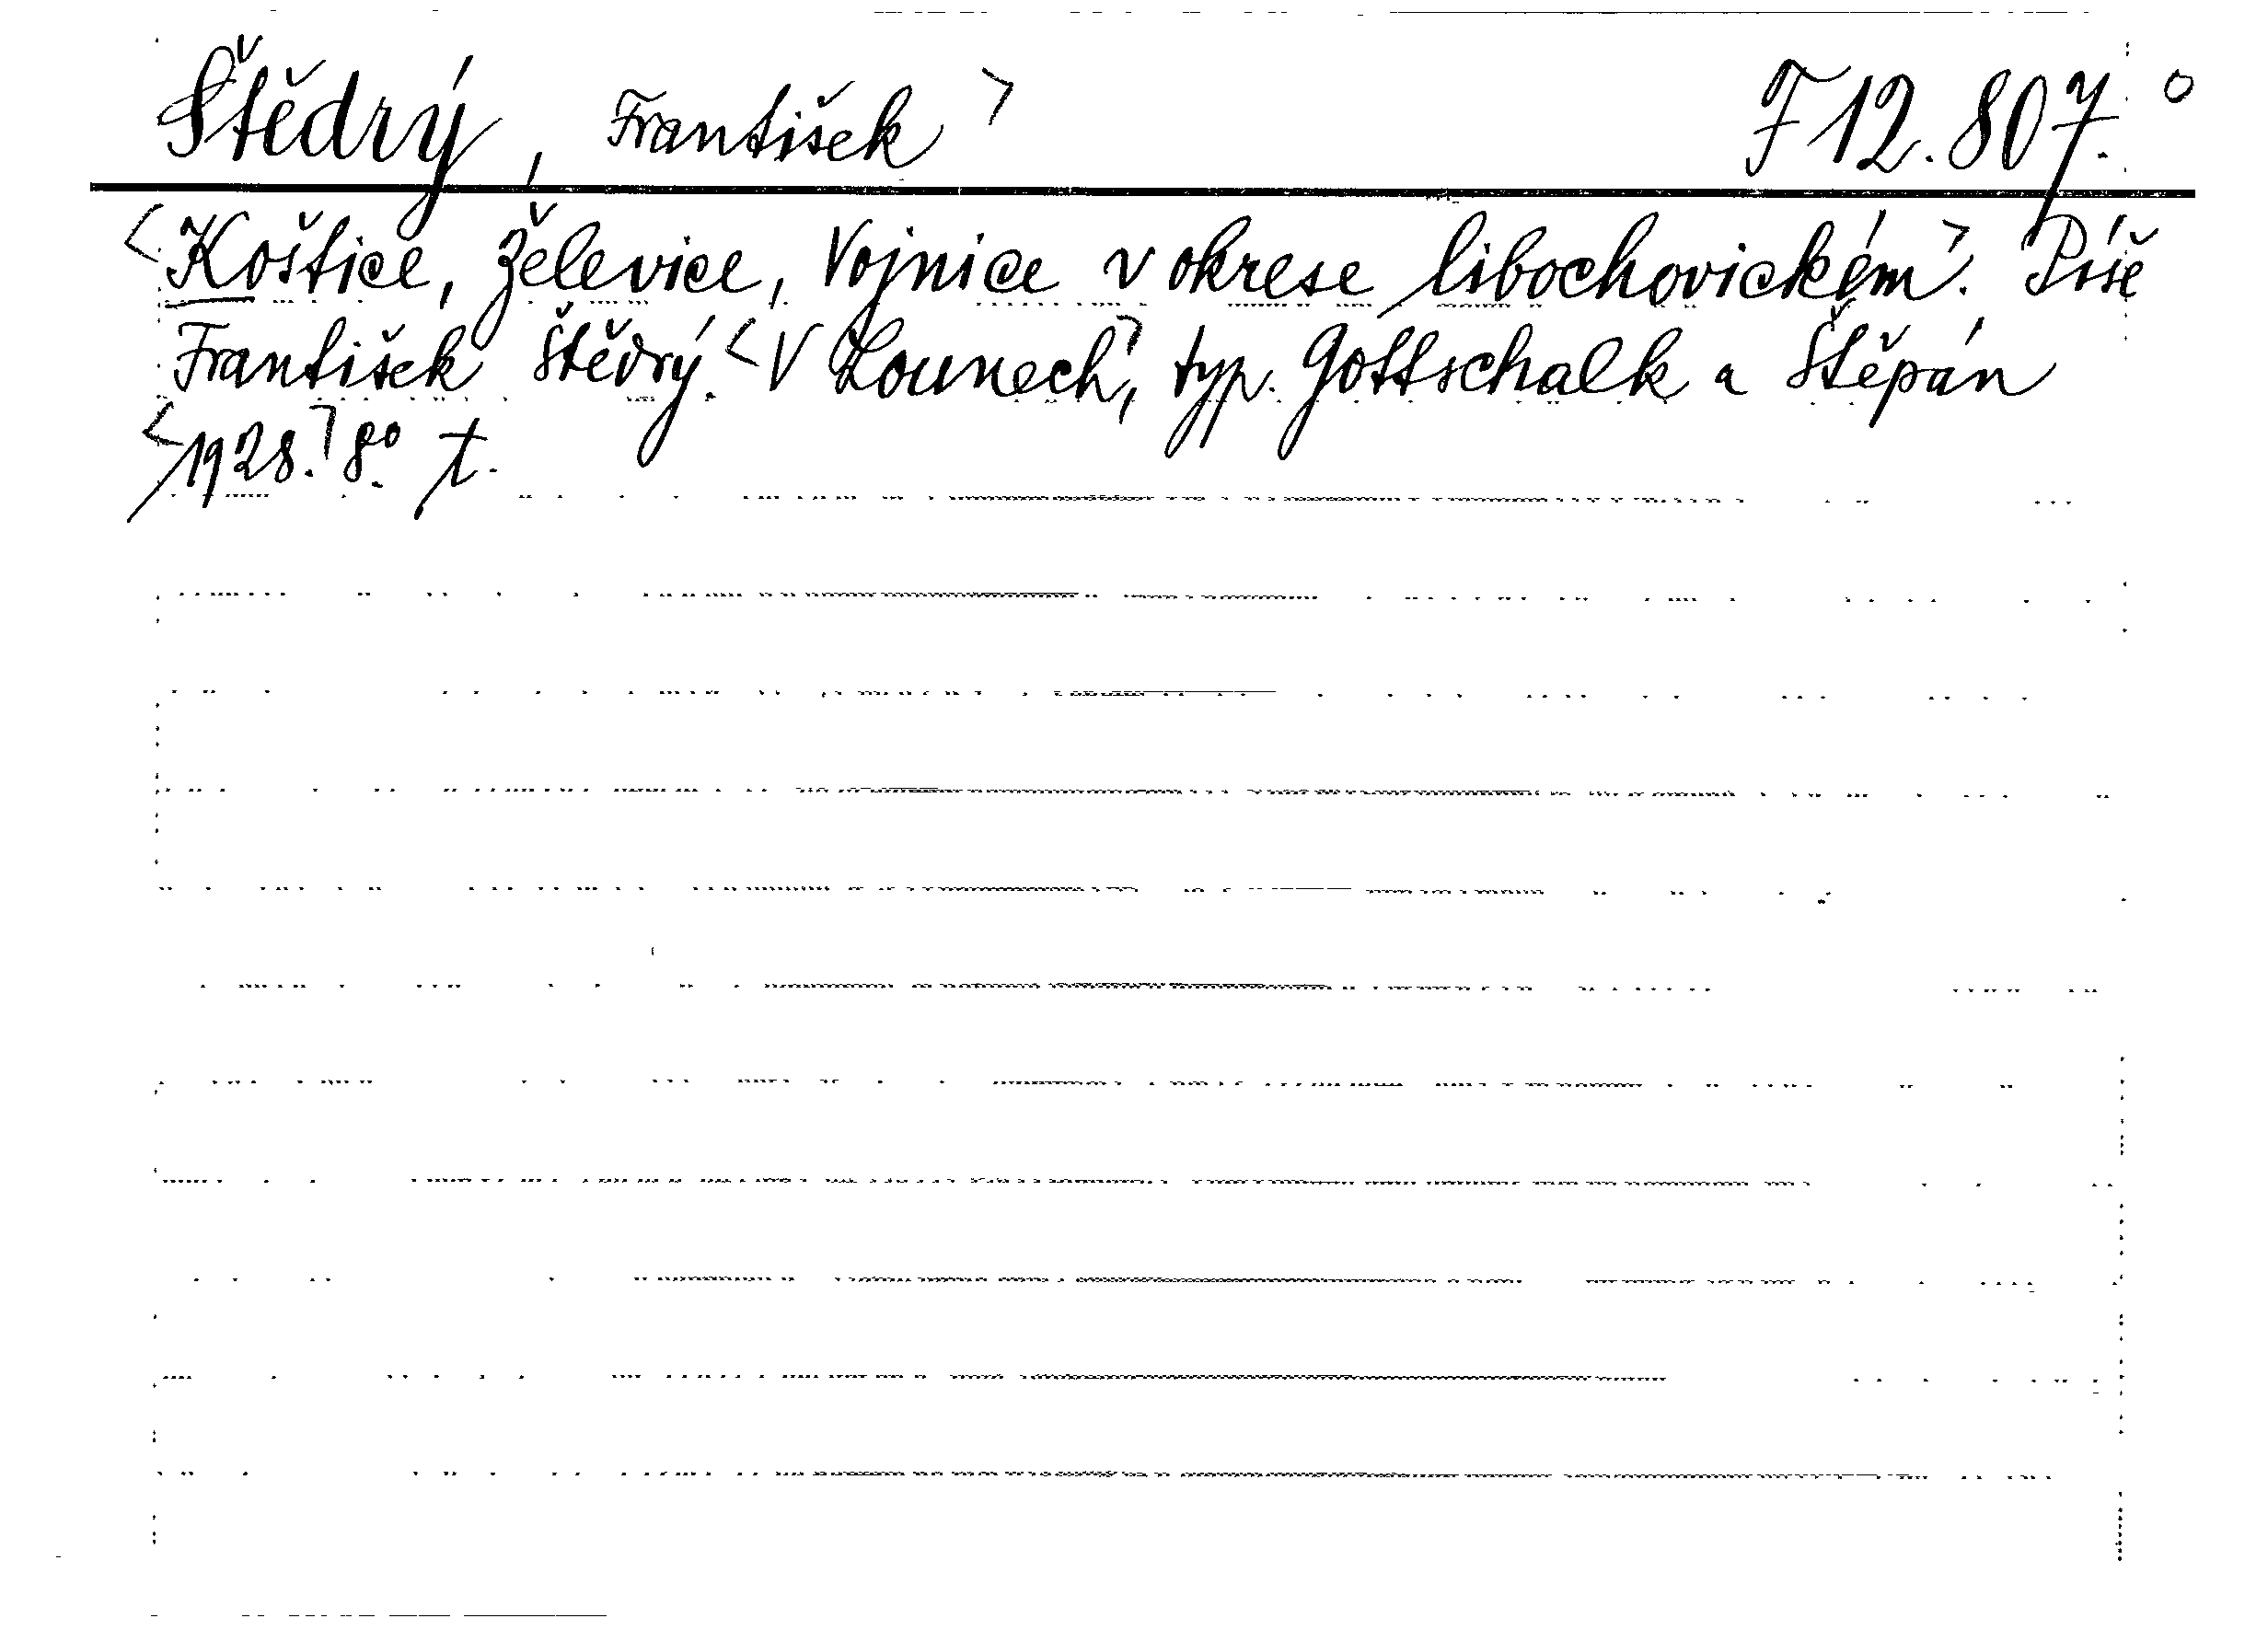 Štědrý, František > F 12.807. o
<Koštice, Želevice, Vojnice v okrese libochovickém>. Píše
František Štědrý. <V Lounech>, typ. Gottschalk a Štěpán
<1928.> 8o. t.